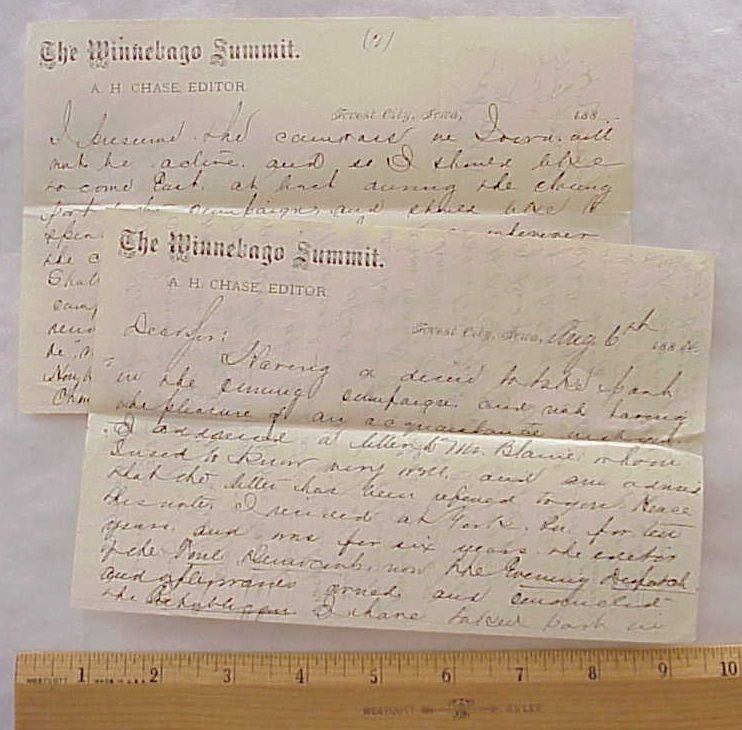 The Winnebago Summit.
(2)
A. H. CHASE, EDITOR
Forest City, Iowa, 188
I presume the canvass in Iowa will
not be active and so I should like
to come East at least during the closing
part of the campaign and should like to
spen whenever
the c
Shal
camp
The Winnebago Summit.
A. H. CHASE, EDITOR
Forest City, Iowa, Aug 6th 188
Dear Sir:
Having a desire to take part
in the coming campaign and not having
the pleasure of an acquaintance with you
I addressed a letter to Mr. Blaine whom
I used to know very well and am advised
that the letter has been referred to you. Hence
this note. I resided at York, Pa. for ten
years and was for six years the editor
of the True Democrat, now the Evening Dispatch
and afterwards owned and
the Republican. I have taken part in
1 2 3 4 5 6 7 8 9 10
WESTCOTT MADE IN U.S.A.
WESTCOTT RULER